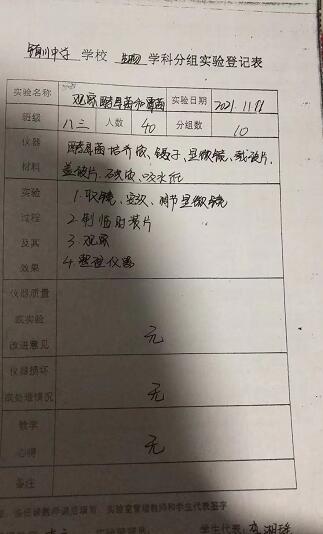 颍川中学 学校 生物 学科分组实验登记表
实验名称 观察酵母菌和霉菌 实验日期 2021.11.11
班级 八三 人数 40 分组数 10
仪器 材料 酵母菌培养液、镊子、显微镜、载玻片、
盖玻片、碘液、吸水纸
实验 过程 及其 效果 1.取镜、安放、调节显微镜
2.制临时装片
3.观察
4.整理仪器
仪器质量 或实验 改进意见 无
仪器损坏 或处理情况 无
教学 心得 无
备注
实验室管理教师和学生代表签字
学生代表: